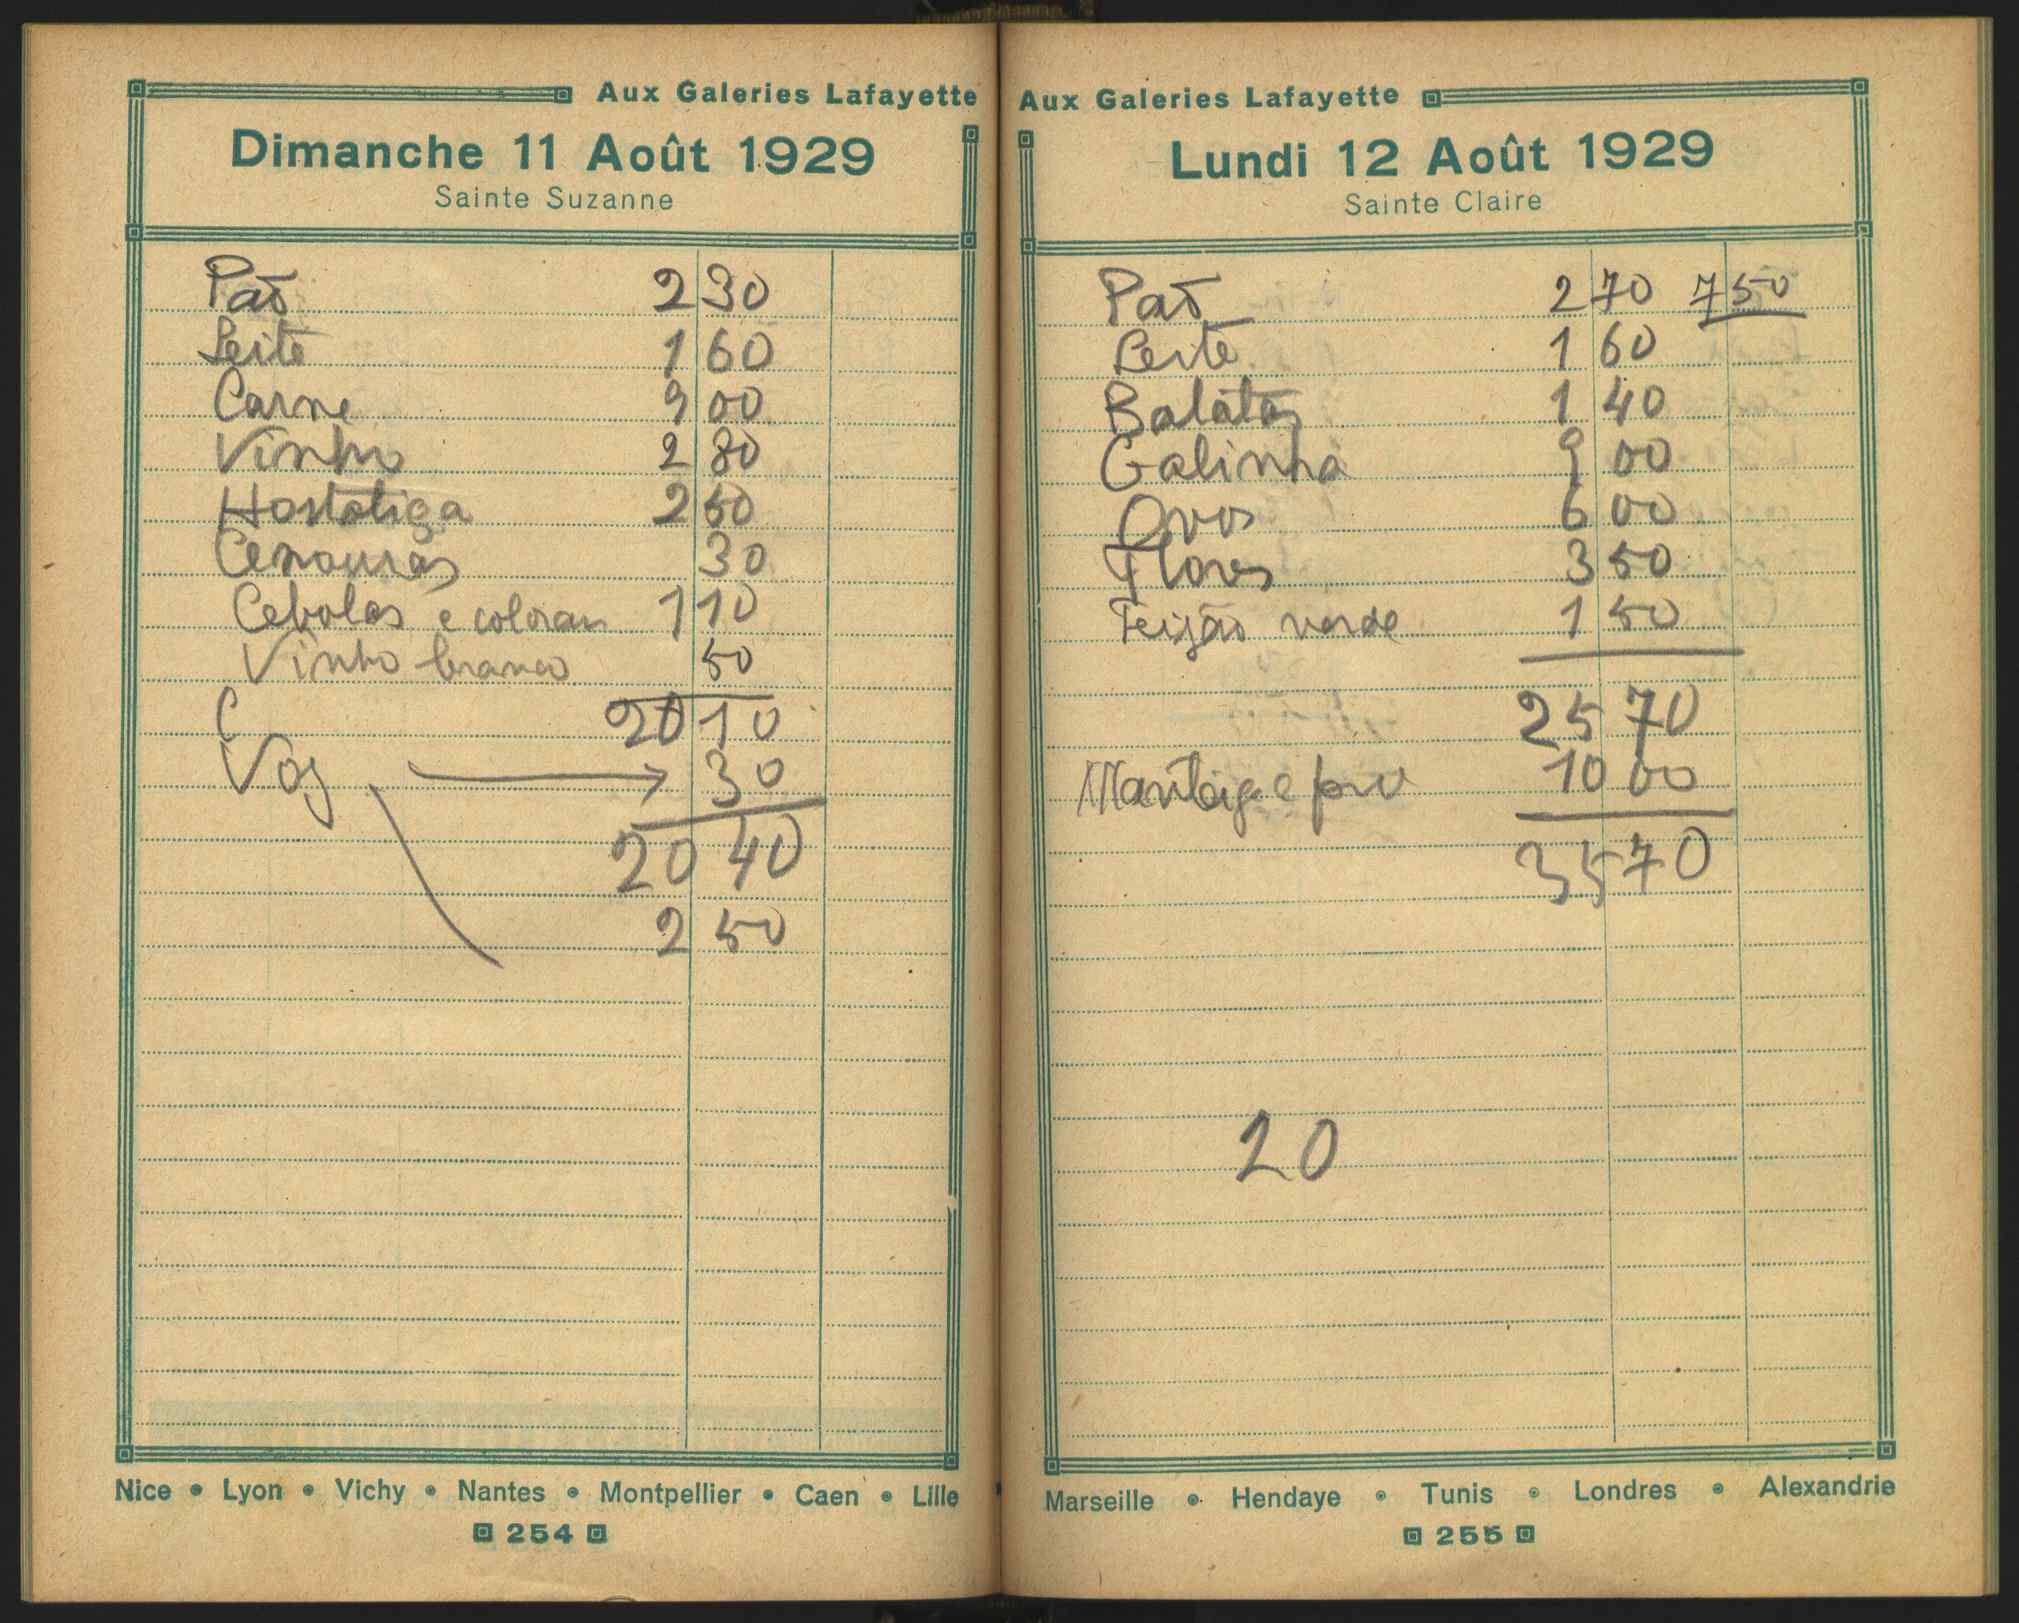 Aux Galeries Lafayette
Dimanche 11 Août 1929
Sainte Suzanne
Paõ 2 30
Leite 1 60
Carne 9 00
Vinho 2 80
Hostaliça 2 50
Cenouras 30
Cebolas e coloran 1 10
Vinho branco 50
C 20 10
30
20 40
2 50
Nice • Lyon • Vichy • Nantes • Montpellier • Caen • Lille
254
Aux Galeries Lafayette
Lundi 12 Août 1929
Sainte Claire
Paõ 2 70 7 50
Leite 1 60
Batatas 1 40
Galinha 9 00
Ovos 6 00
Flores 3 50
Feijão verde 1 50
25 70
10 00
35 70
20
Marseille • Hendaye • Tunis • Londres • Alexandrie
255